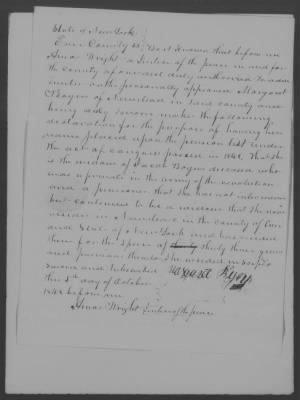 State of New York
Erie County SS, Be it known that before me
Amos Wright a Justice of the peace in and for
the county aforesaid duly authorised to adm
inister oaths personally appeared Margaret
Byers of Newstead in said county and
being duly sworn makes the following
declaration for the purpose of having her
name placed upon the pension list under
the act of congress passed in 1848. That she
is the widow of Jacob Byers deceased who
was a private in the army of the revolution
and a pensioner that she has not intermarried
but continues to be a widow that she now
resides in Newstead in the county of Erie
and State of New York and has resided
there for the space of thirty three years
and previous thereto she resided in
Sworn and subscribed Margaret Byers
this day of October
1848 before me
Amos Wright Justice of the peace